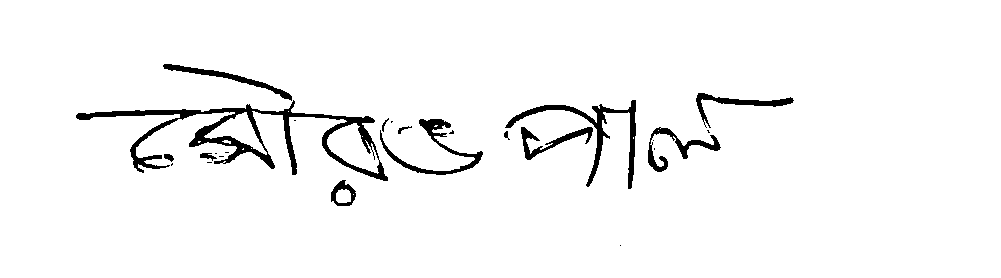 সৌরভ পাল